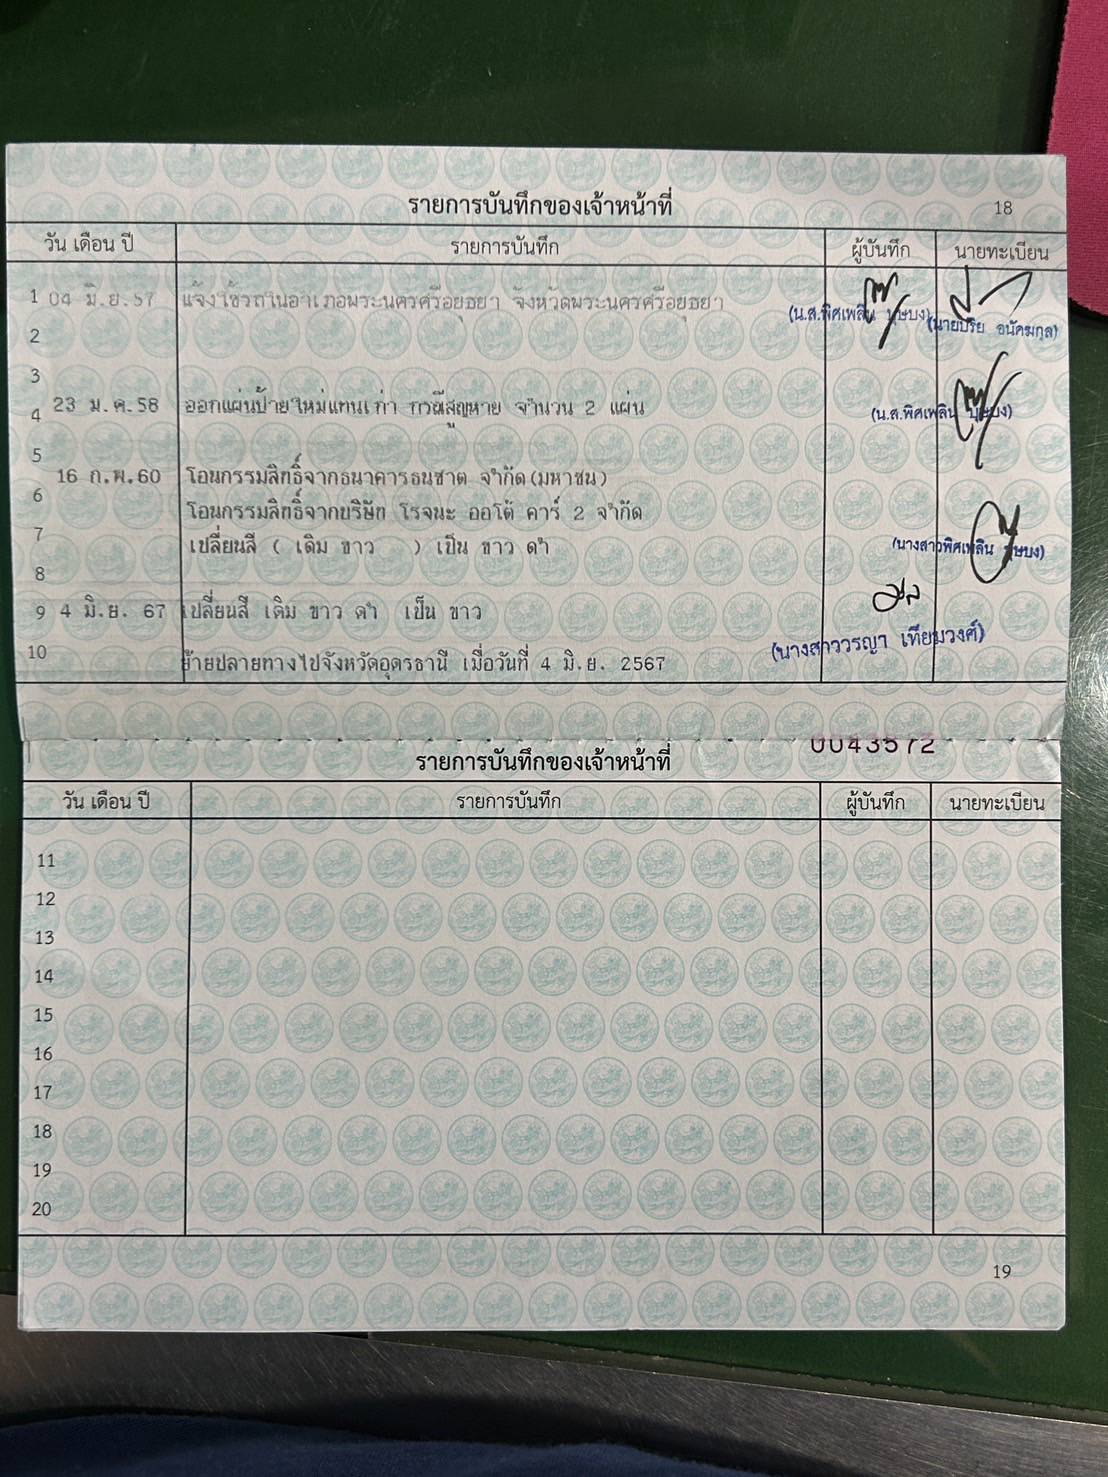 รายการบันทึกของเจ้าหน้าที่ 18
วัน เดือน ปี รายการบันทึก ผู้บันทึก นายทะเบียน
1 04 มิ.ย.57 แจ้งใช้รถในอำเภอพระนครศรีอยุธยา จังหวัดพระนครศรีอยุธยา (น.ส.พิศเพลิน บุษบง) (นายปรีย อนัคมกุล)
2
3
4 23 ม.ค.58 ออกแผ่นป้ายใหม่แทนเก่า กรณีสูญหาย จำนวน 2 แผ่น (น.ส.พิศเพลิน บุษบง)
5
16 ก.พ.60 โอนกรรมสิทธิ์จากธนาคารธนชาต จำกัด(มหาชน)
6
โอนกรรมสิทธิ์จากบริษัท โรจนะ ออโต้ คาร์ 2 จำกัด
7
เปลี่ยนสี ( เดิม ขาว ) เป็น ขาว ดำ (นางสาวพิศเพลิน บุษบง)
8
9 4 มิ.ย. 67 เปลี่ยนสี เดิม ขาว ดำ เป็น ขาว
10 ย้ายปลายทางไปจังหวัดอุดรธานี เมื่อวันที่ 4 มิ.ย. 2567 (นางสาววรญา เทียมวงศ์)
0043572
รายการบันทึกของเจ้าหน้าที่
วัน เดือน ปี รายการบันทึก ผู้บันทึก นายทะเบียน
11
12
13
14
15
16
17
18
19
20
19